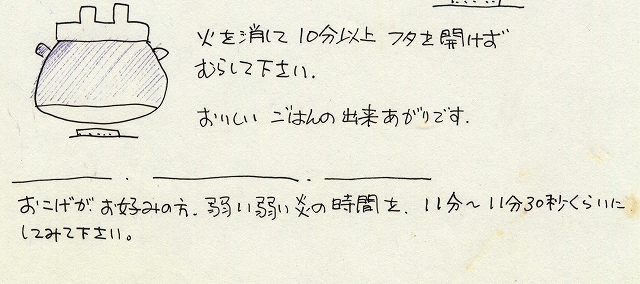 火を消して 10分以上 フタを開けず
むらして下さい.
おいしい ごはんの出来あがりです.
おこげが お好みの方、弱い弱い炎の時間を、11分〜11分30秒くらいに
してみて下さい。